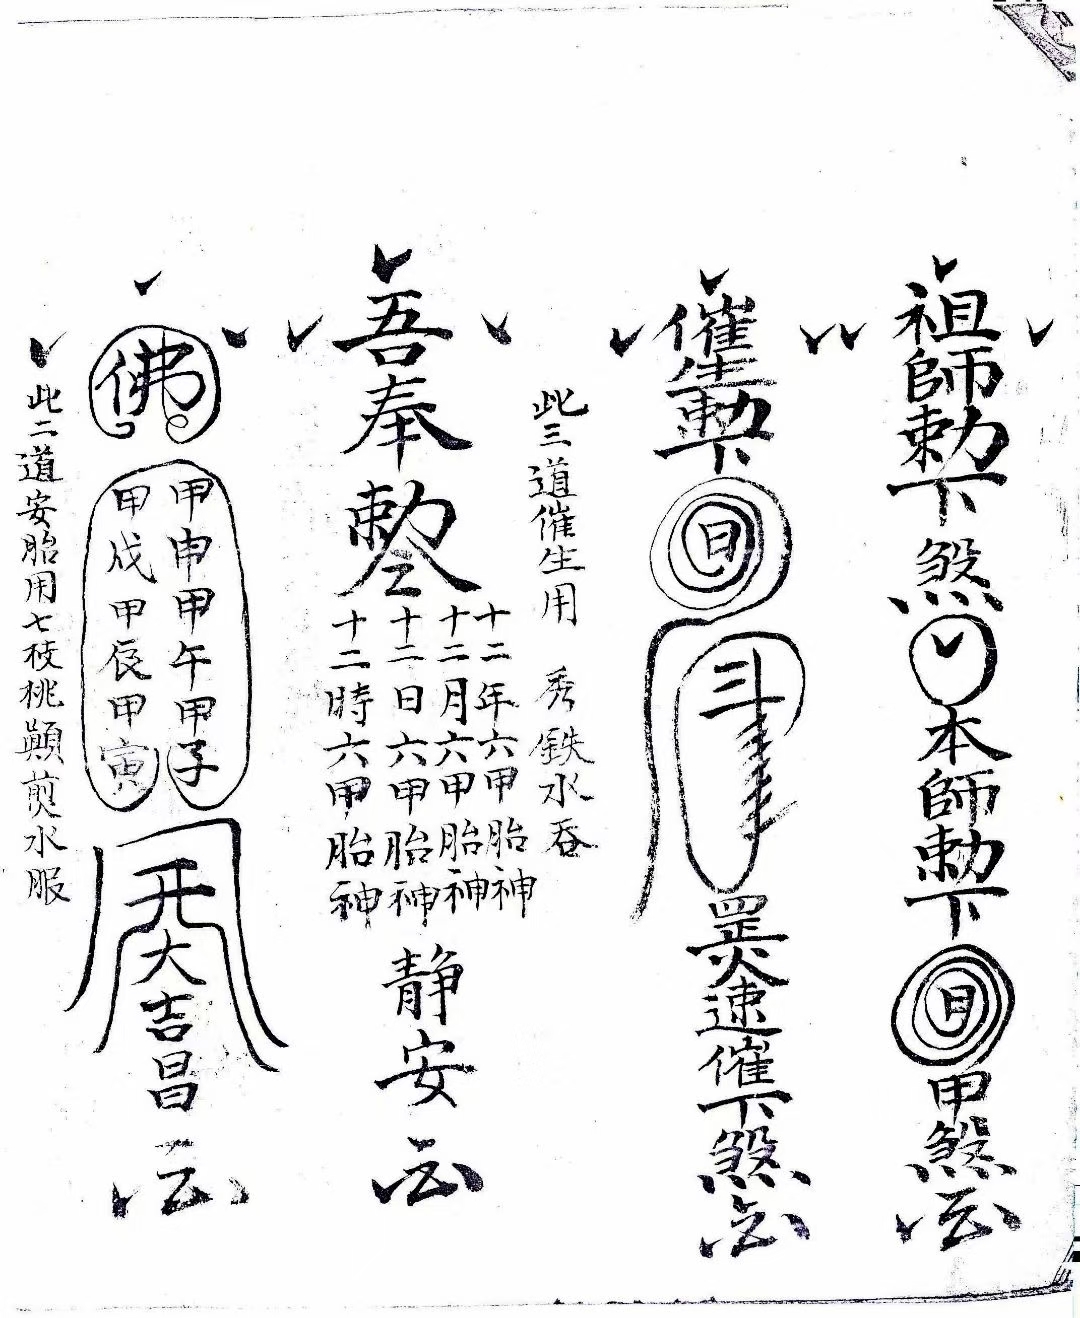 祖師勅下煞本師勅下月甲煞
催生勅下日罡火速催下煞
此三道催生用 秀鉄水吞
吾奉勅令
十二年六甲胎神
十二月六甲胎神
十二日六甲胎神
十二時六甲胎神
静安
佛
甲申甲午甲子
甲戌甲辰甲寅
大吉昌
此二道安胎用七枝桃顚煎水服